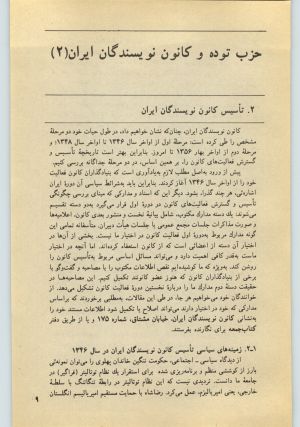 حزب توده و کانون نویسندگان ایران(۲)
۲. تأسیس کانون نویسندگان ایران
کانون نویسندگان ایران، چنان‌که نشان خواهیم داد، در طول حیات خود دو مرحلهٔ
مشخص را طی کرده است: مرحلهٔ اول از اواخر سال ۱۳۴۶ تا اواخر سال ۱۳۴۸؛ و
مرحلهٔ دوم از اواخر بهار ۱۳۵۶ تا امروز. بنابراین بهتر است تاریخچهٔ تأسیس و
گسترش فعالیت‌های کانون را، بر همین اساس، در دو مرحلهٔ جداگانه بررسی کنیم.
پیش از ورود به‌اصل مطلب لازم به‌یادآوری است که بنیادگذاران کانون فعالیت
خود را از اواخر سال ۱۳۴۶ آغاز کردند. بنابراین باید به‌شرائط سیاسی آن دورهٔ ایران
اشارتی، هر چند گذرا، بشود. دیگر این که اسناد و مدارکی که مبنای بررسی چگونگی
تأسیس و گسترش فعالیت‌های کانون در دورهٔ اول قرار می‌گیرد به‌دو دسته تقسیم
می‌شوند: یك دسته مدارك مکتوب، شامل بیانیهٔ نخست و منشور بعدی کانون، اعلامیه‌ها
و صورت مذاکرات جلسات مجمع عمومی یا جلسات هیأت دبیران. متأسفانه تمامی این
گونه مدارك مربوط به‌دورهٔ اول فعالیت کانون در اختیار ما نیست. بخشی از آن‌ها در
اختیار آن دسته از اعضائی است که از کانون استعفاء کرده‌اند. اما آنچه در اختیار
ماست به‌قدر کافی اهمیت دارد و می‌تواند مسائل اساسی مربوط به‌تأسیس کانون را
روشن کند. به‌ویژه که ما کوشیده‌ایم نقص اطلاعات مکتوب را با مصاحبه و گفت‌وگو با
برخی از بنیادگذاران کانون که هنوز عضو کانونند تکمیل کنیم. این مصاحبه‌ها در
حقیقت دستهٔ دوم مدارك ما را دربارهٔ نخستین دورهٔ فعالیت کانون تشکیل می‌دهد. از
خوانندگان خود می‌خواهیم هر جا، در طی این مقالات، به‌مطلبی برخوردند که براساس
مدارکی که خود در اختیار دارند می‌تواند اصلاح یا تکمیل شود اطلاعات مستند خود را
به‌نشانی کانون نویسندگان ایران، خیابان مشتاق، شماره ۱۷۵ و یا از طریق دفتر
کتاب‌جمعه برای نگارنده بفرستند.
۱ــ۲. زمینه‌های سیاسی تأسیس کانون نویسندگان ایران در سال ۱۳۴۶
از دیدگاه سیاسی ـ اجتماعی، حکومت ننگین خاندان پهلوی را می‌توان نمونه‌ئی
بارز از کوششی منظم و برنامه‌ریزی شده برای استقرار یك نظام توتالیتر (فراگیر) در
جامعهٔ ما دانست. تردیدی نیست که این نظام توتالیتر در رابطهٔ تنگاتنگ با سلطهٔ
خارجی، یعنی امپریالیزم، عمل می‌کرد. رضاشاه با حمایت مستقیم امپریالیسم انگلستان
۹